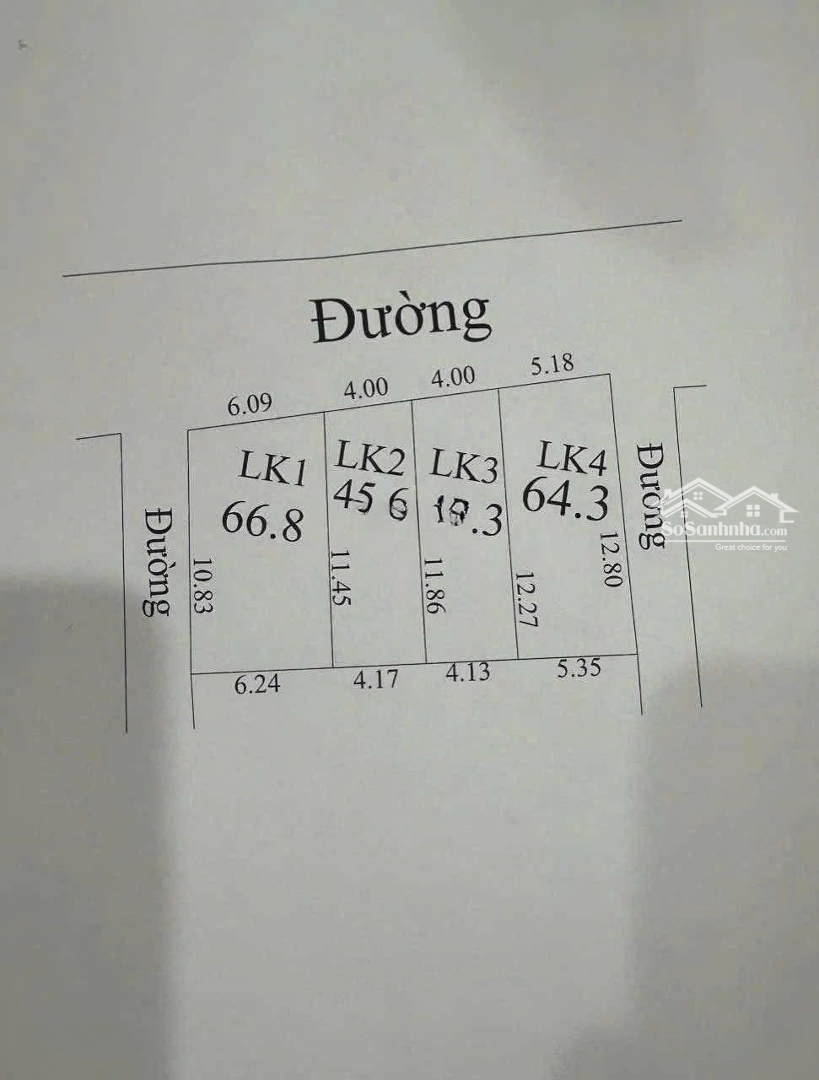 Đường
6.09
4.00
4.00
5.18
LK1
66.8
LK2
45 6
LK3
LK4
64.3
Đường
Đường
10.83
11.45
11.86
12.27
12.80
6.24
4.17
4.13
5.35
SoSanhnha.com
Great choice for you